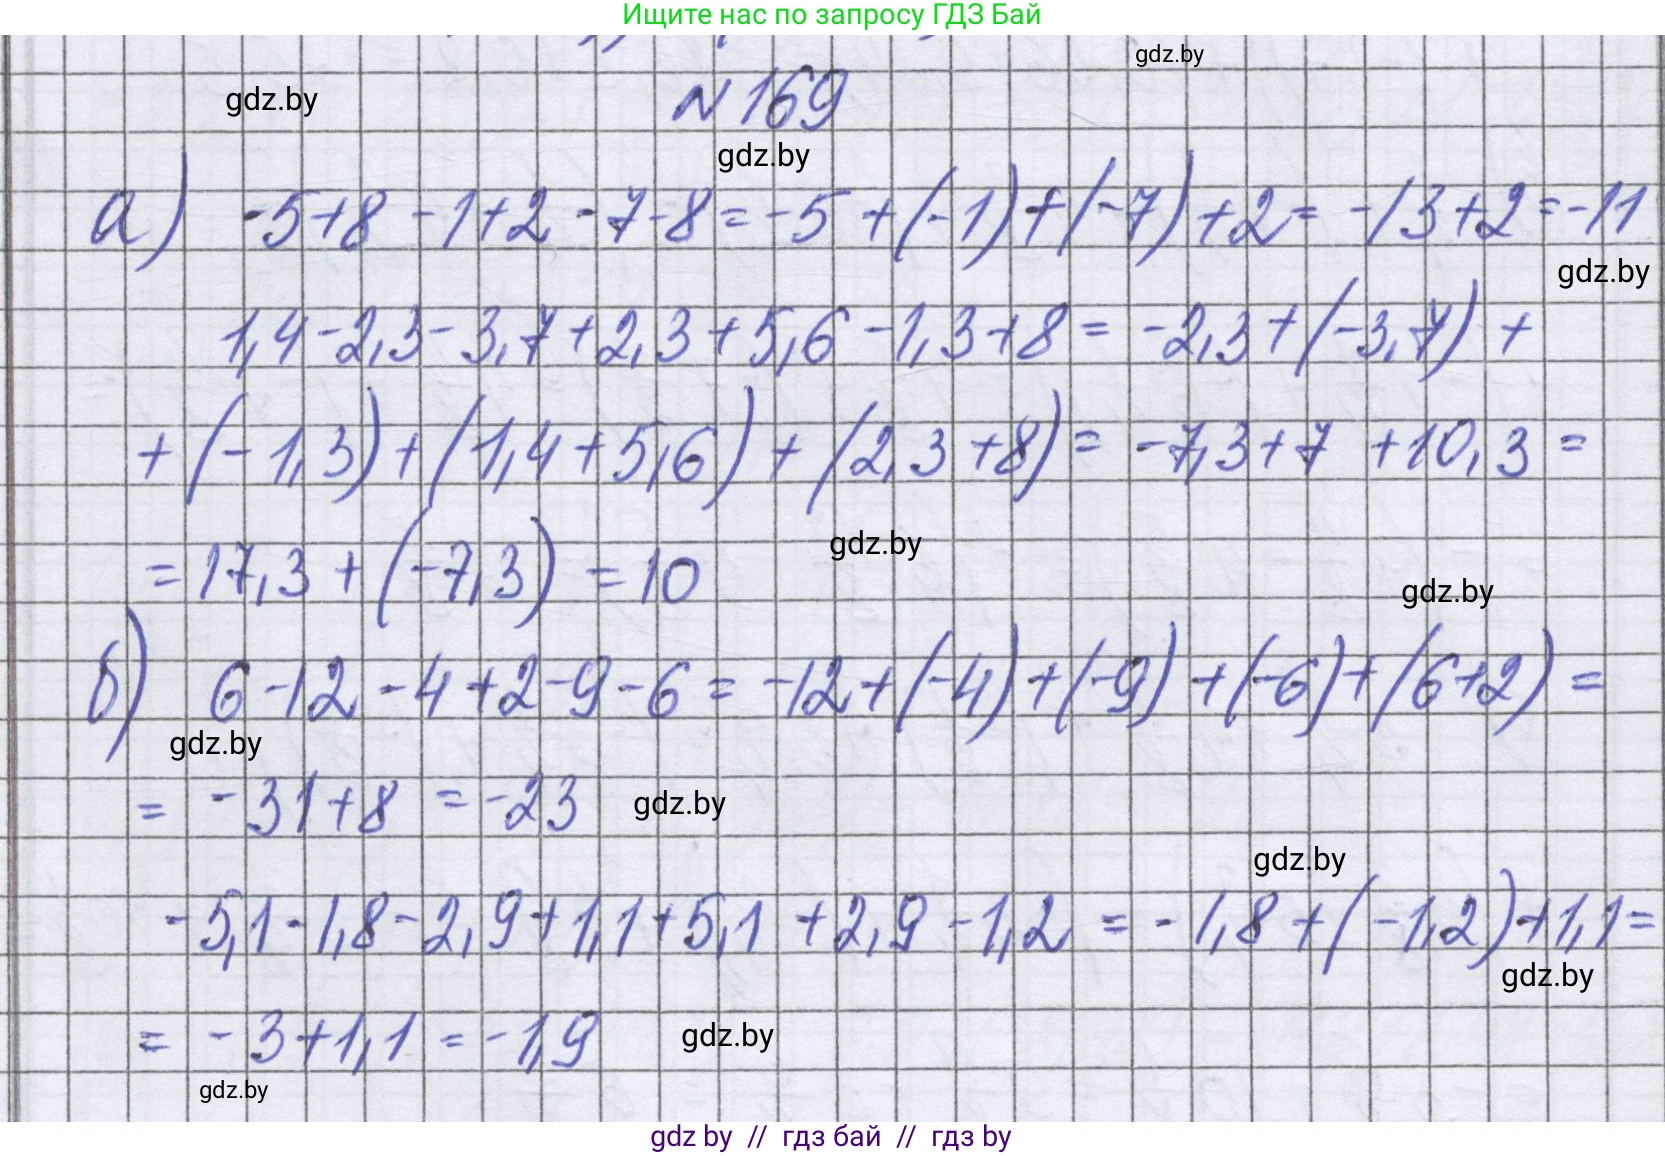 Ищите нас по запросу ГДЗ Бай
gdz.by
gdz.by
№ 169
gdz.by
а) -5+8-1+2-7-8=-5+(-1)+(-7)+2=-13+2=-11
gdz.by
1,4-2,3-3,7+2,3+5,6-1,3+8=-2,3+(-3,7)+
+(-1,3)+(1,4+5,6)+(2,3+8)=-7,3+7+10,3=
gdz.by
=17,3+(-7,3)=10
gdz.by
б) 6-12-4+2-9-6=-12+(-4)+(-9)+(-6)+(6+2)=
gdz.by
=-31+8=-23
gdz.by
gdz.by
-5,1-1,8-2,9+1,1+5,1+2,9-1,2=-1,8+(-1,2)+1,1=
gdz.by
=-3+1,1=-1,9
gdz.by
gdz.by
gdz by // гдз бай // гдз by